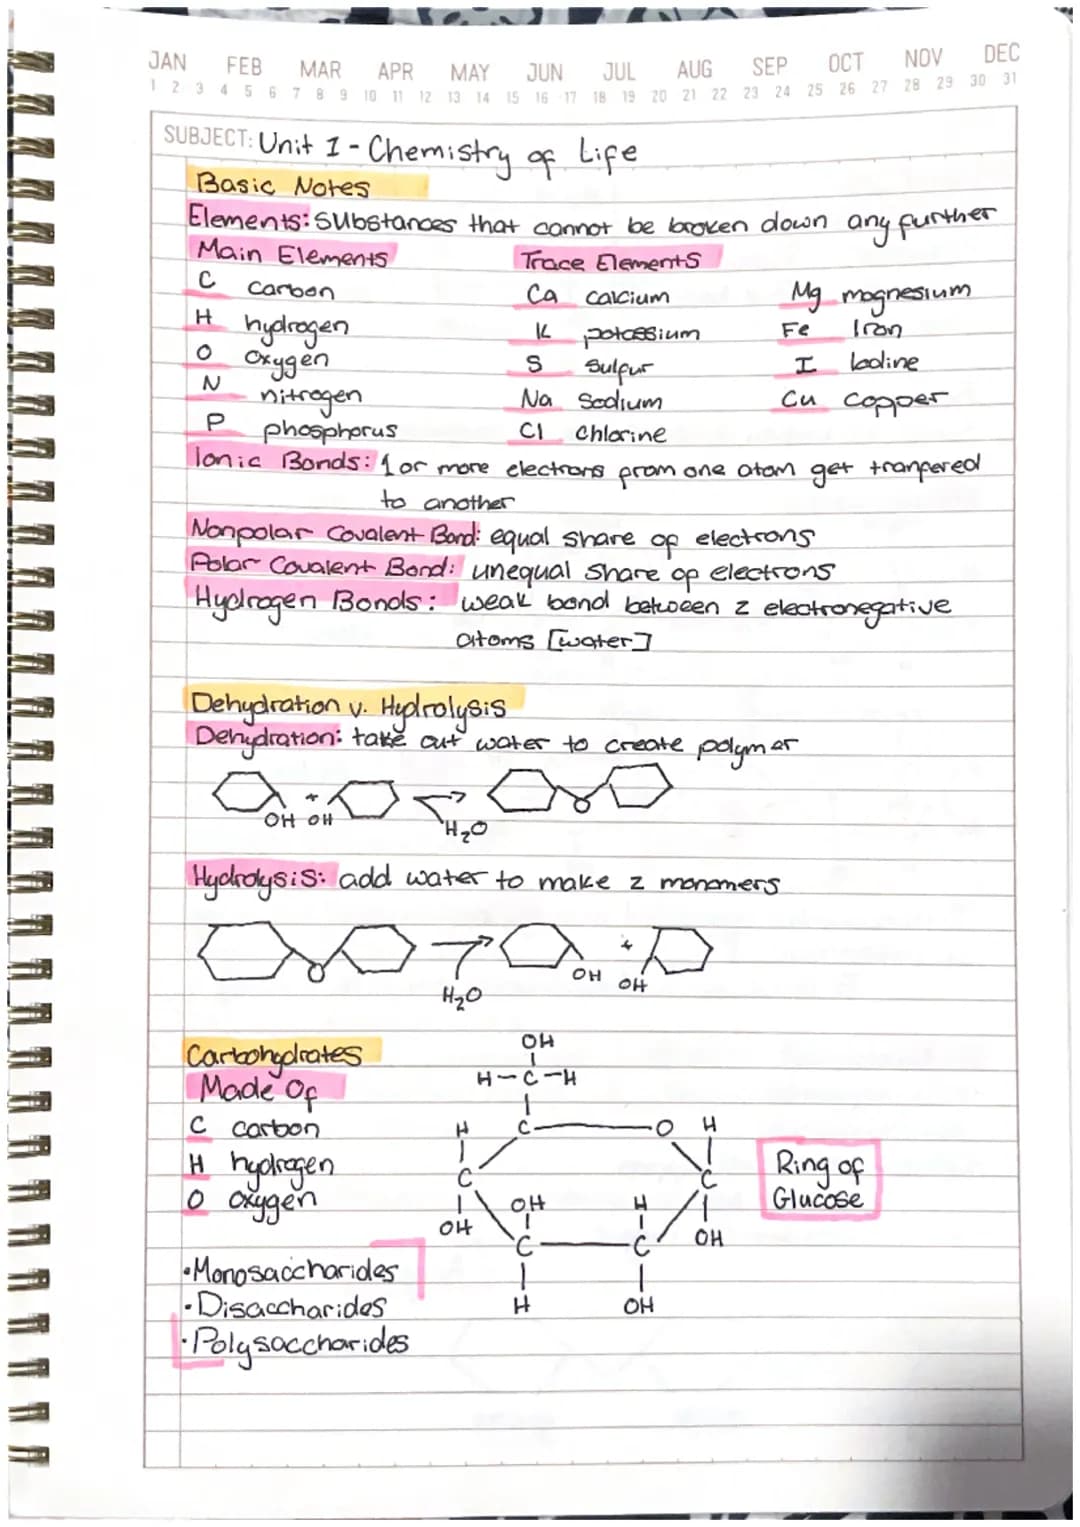 JAN FEB MAR APR MAY JUN JUL AUG SEP OCT NOV DEC
1 2 3 4 5 6 7 8 9 10 11 12 13 14 15 16 17 18 19 20 21 22 23 24 25 26 27 28 29 30 31
SUBJECT: Unit 1 - Chemistry of Life
Basic Notes
Elements: substances that cannot be broken down any further
Main Elements Trace Elements
C carbon Ca calcium Mg magnesium
H hydrogen K potassium Fe Iron
O oxygen S sulfur I Iodine
N nitrogen Na Sodium Cu copper
P phosphorus Cl chlorine
Ionic Bonds: 1 or more electrons from one atom get tranfered
to another
Nonpolar Covalent Bond: equal share of electrons
Polar Covalent Bond: unequal share of electrons
Hydrogen Bonds: weak bond between 2 electronegative
atoms [water]
Dehydration v. Hydrolysis
Dehydration: take out water to create polymer
+
OH OH
H₂O
Hydrolysis: add water to make 2 monomers
+
OH OH
H₂O
Carbohydrates
Made Of
C carbon
H hydrogen
O oxygen
OH
H-C-H
H C O H
C C
OH OH H OH
C C
H OH
Ring of
Glucose
•Monosaccharides
•Disaccharides
•Polysaccharides